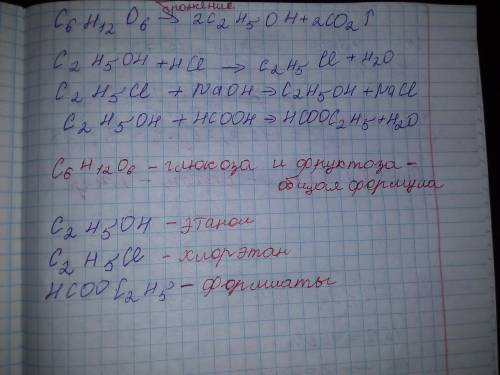 брожение
C₆H₁₂O₆ → 2C₂H₅OH + 2CO₂↑
C₂H₅OH + HCl → C₂H₅Cl + H₂O
C₂H₅Cl + NaOH → C₂H₅OH + NaCl
C₂H₅OH + HCOOH → HCOOC₂H₅ + H₂O
C₆H₁₂O₆ - глюкоза и фруктоза -
общая формула
C₂H₅OH - этанол
C₂H₅Cl - хлорэтан
HCOOC₂H₅ - формиаты